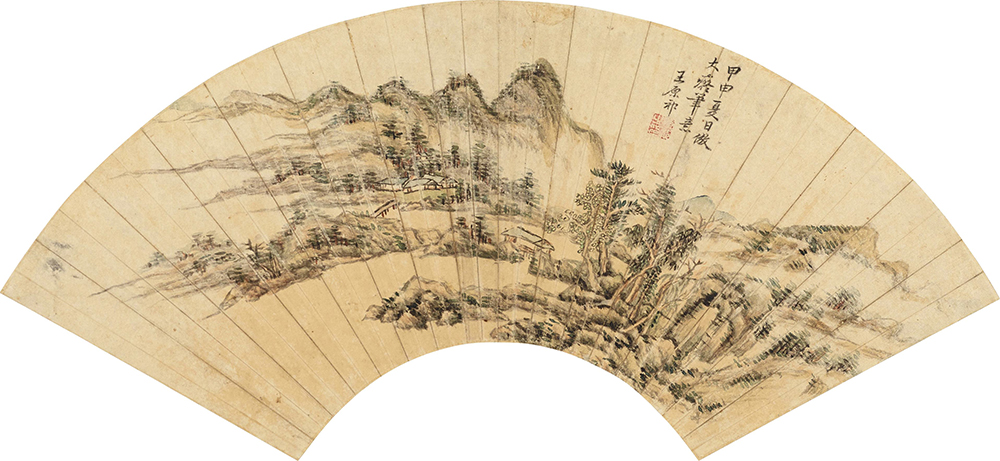 甲申夏日倣
大癡筆意
王原祁